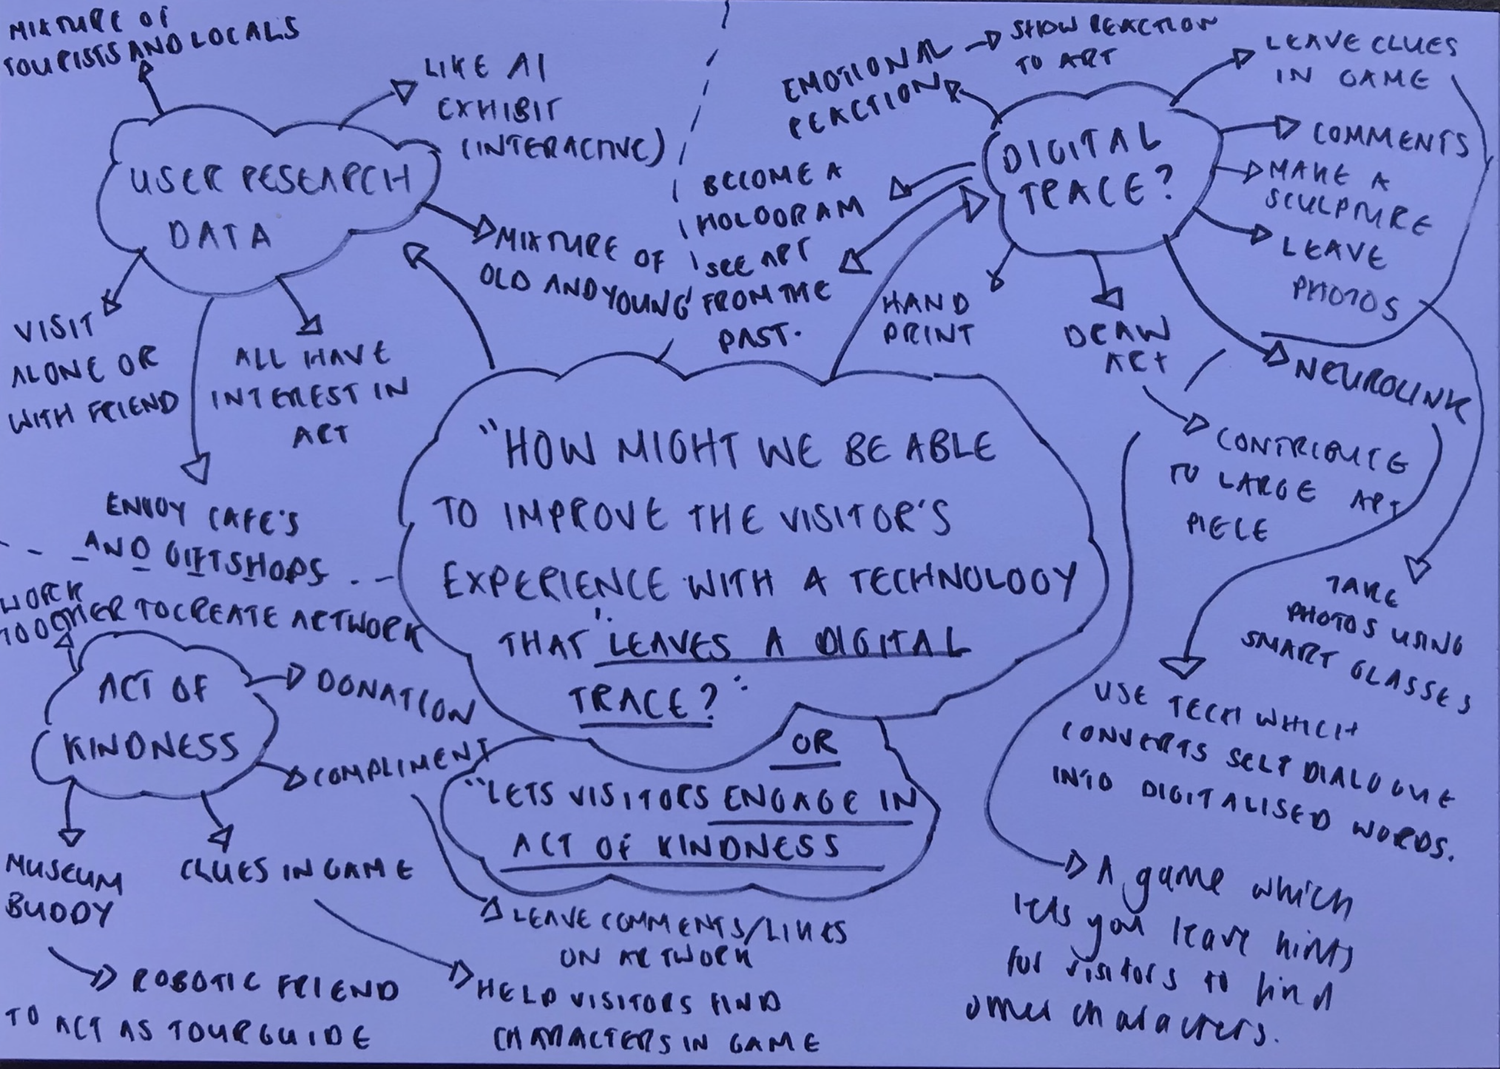 MIXTURE OF
TOURISTS AND LOCALS
LIKE AI
EXHIBIT
(INTERACTIVE)
USER RESEARCH
DATA
MIXTURE OF
OLD AND YOUNG
VISIT
ALONE OR
WITH FRIEND
ALL HAVE
INTEREST IN
ART
ENJOY CAFE'S
AND GIFTSHOPS
EMOTIONAL
REACTION
SHOW REACTION
TO ART
DIGITAL
TRACE?
LEAVE CLUES
IN GAME
COMMENTS
MAKE A
SCULPTURE
LEAVE
PHOTOS
BECOME A
HOLOGRAM
SEE ART
FROM THE
PAST.
HAND
PRINT
DRAW
ART
NEUROLINK
CONTRIBUTE
TO LARGE ART
PIECE
TAKE
PHOTOS USING
SMART GLASSES
USE TECH WHICH
CONVERTS SELF DIALOGUE
INTO DIGITALISED WORDS.
A game which
lets you leave hints
for visitors to find
other characters.
"HOW MIGHT WE BE ABLE
TO IMPROVE THE VISITOR'S
EXPERIENCE WITH A TECHNOLOGY
THAT "LEAVES A DIGITAL
TRACE?"
OR
"LETS VISITORS ENGAGE IN
ACT OF KINDNESS
WORK
TOGTHER TO CREATE ARTWORK
ACT OF
KINDNESS
DONATION
COMPLIMENT
MUSEUM
BUDDY
CLUES IN GAME
LEAVE COMMENTS/LIKES
ON ARTWORK
ROBOTIC FRIEND
TO ACT AS TOURGUIDE
HELP VISITORS FIND
CHARACTERS IN GAME